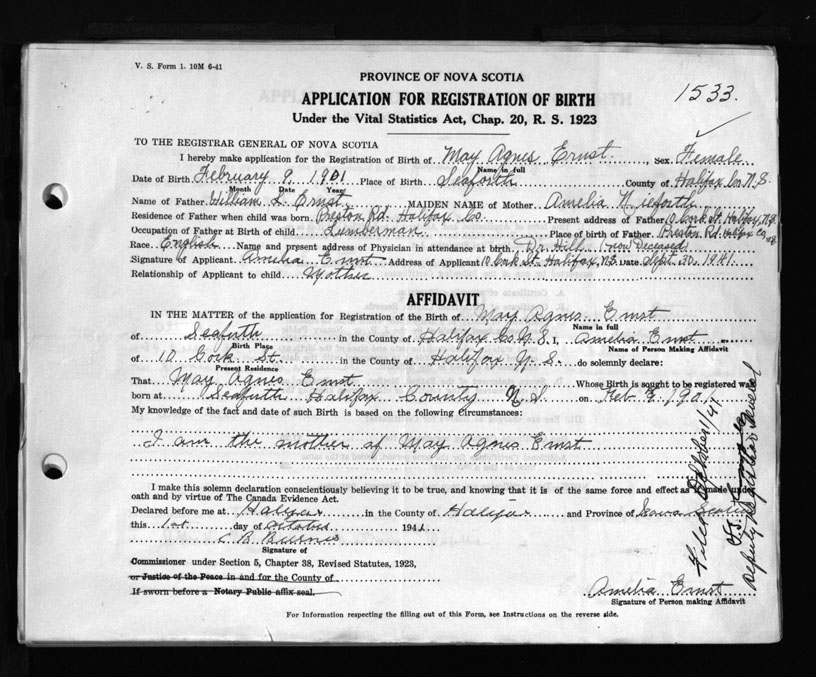 V. S. Form 1. 10M 6-41
PROVINCE OF NOVA SCOTIA
APPLICATION FOR REGISTRATION OF BIRTH
Under the Vital Statistics Act, Chap. 20, R. S. 1923
1533.
TO THE REGISTRAR GENERAL OF NOVA SCOTIA
I hereby make application for the Registration of Birth of May Agnes Ernst, Sex Female
Name in full
Date of Birth February 9, 1901 Place of Birth Seaforth County of Halifax Co N.S.
Month Date Year
Name of Father William L. Ernst MAIDEN NAME of Mother Amelia
Residence of Father when child was born Preston Rd. Halifax Co. Present address of Father 10 Cork St. Halifax, N.S.
Occupation of Father at Birth of child Lumberman Place of birth of Father Preston Rd. Halifax Co, N.S.
Race English Name and present address of Physician in attendance at birth Dr. Hill now Deceased
Signature of Applicant Amelia Ernst Address of Applicant 10 Cork St. Halifax, N.S. Date Sept. 30, 1941
Relationship of Applicant to child Mother
AFFIDAVIT
IN THE MATTER of the application for Registration of the Birth of May Agnes Ernst
Name in full
of Seaforth in the County of Halifax Co N.S. I, Amelia Ernst
Birth Place Name of Person Making Affidavit
of 10 Cork St. in the County of Halifax N.S. do solemnly declare:
Present Residence
That May Agnes Ernst Whose Birth is sought to be registered was
born at Seaforth Halifax County N.S. on Feb 9 1901
My knowledge of the fact and date of such Birth is based on the following Circumstances:
I am the mother of May Agnes Ernst
I make this solemn declaration conscientiously believing it to be true, and knowing that it is of the same force and effect as if made under
oath and by virtue of The Canada Evidence Act.
Declared before me at Halifax in the County of Halifax and Province of Nova Scotia
this 1st day of October 1941
C. B. Burns
Signature of
Commissioner under Section 5, Chapter 38, Revised Statutes, 1923,
or Justice of the Peace in and for the County of
If sworn before a Notary Public affix seal.
Amelia Ernst
Signature of Person making Affidavit
For Information respecting the filling out of this Form, see Instructions on the reverse side.
Filed October 1/41
Deputy Registrar General